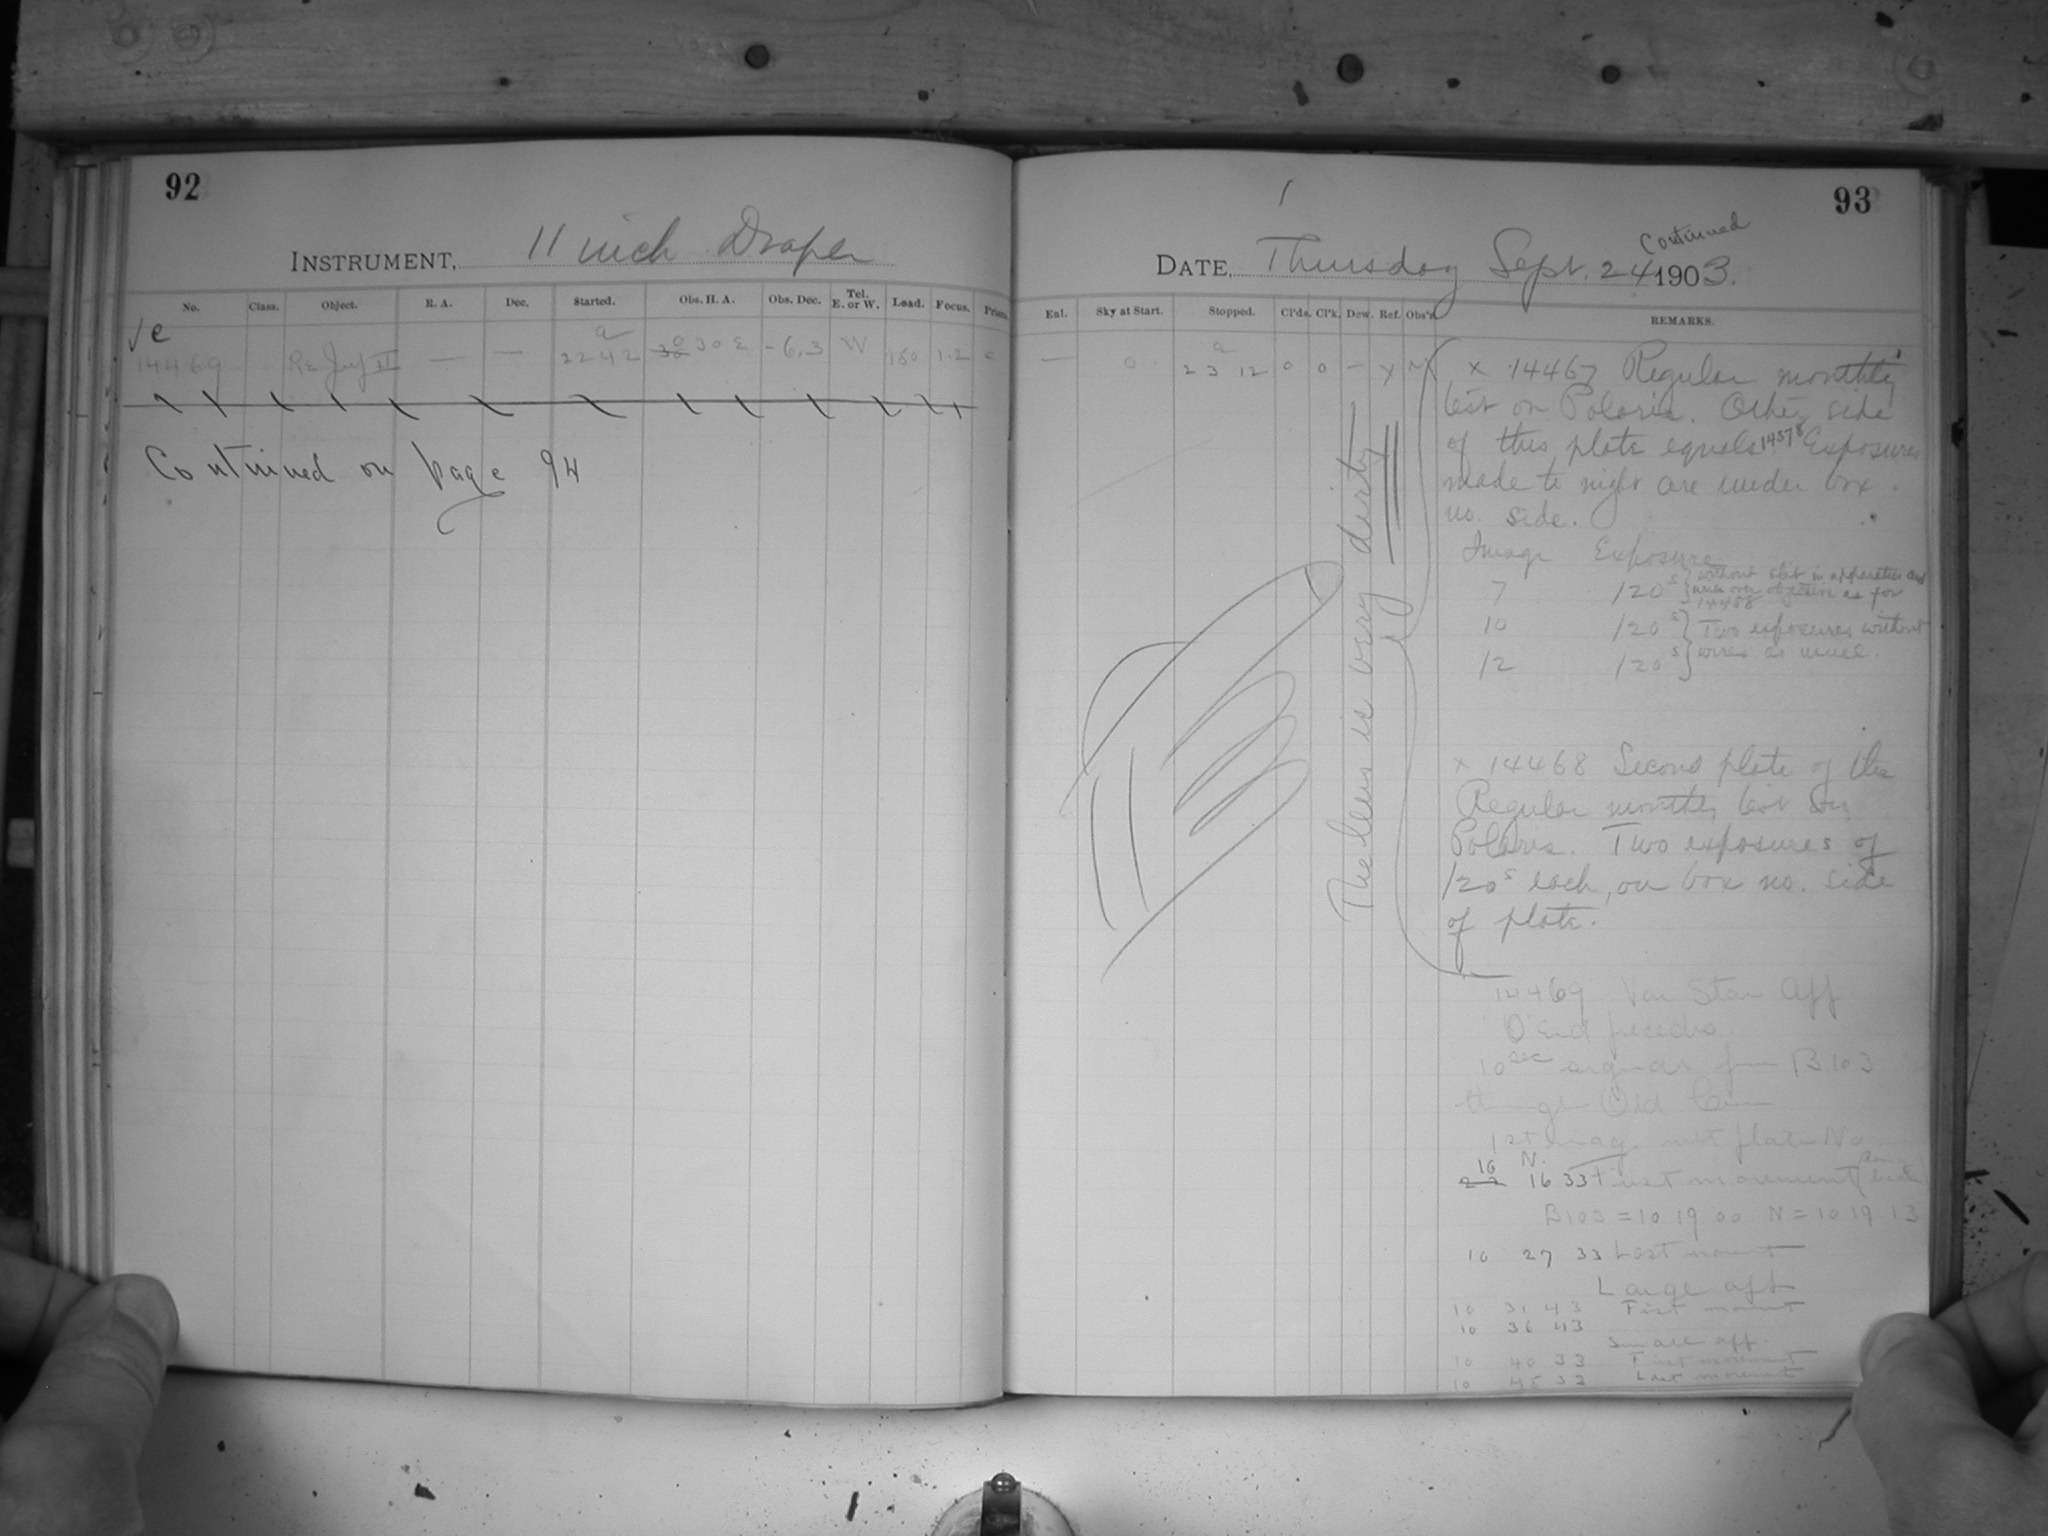 92
INSTRUMENT, 11 inch Draper
No. Class. Object. R. A. Dec. Started. Obs. H. A. Obs. Dec. Tel. E. or W. Load. Focus. Prism.
14469 — — 22 42 30 E -6.3 W 150 1.2
Continued on page 94
93
Continued
DATE, Thursday Sept. 24 1903.
Enl. Sky at Start. Stopped. Cl'ds. Cl'k. Dew. Ref. Obs'r. REMARKS.
— 0 23 12 0 0 — y
The lens is very dirty
x 14467 Regular monthly
test on Polaris. Other side
of this plate equals 14378 Exposures
made to night are under box
no. side.
Image Exposure
7 120s without slit in apparatus and
over objective as for
14468
10 120s Two exposures without
12 120s wires as usual.
x 14468 Second plate of the
Regular monthly test on
Polaris. Two exposures of
120s each, on box no. side
of plate.
14469 Var Star App.
O End precedes
10 sec signals from B 103
through Old
1st plate No.
16 N.
16 33 First movement
B103 = 10 19 00 N = 10 19 13
10 27 33 Last movement
Large app
10 31 43 First movement
10 36 43
Small app.
10 40 33 First movement
10 45 33 Last movement